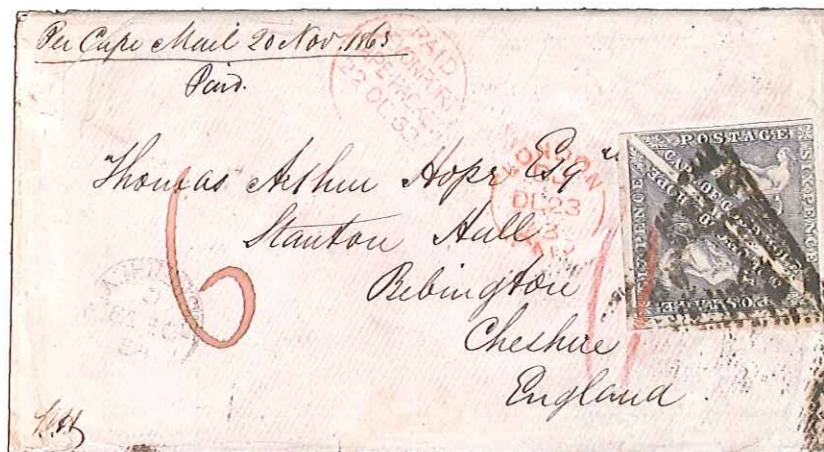 Per Cape Mail 20 Nov. 1863
Paid.
PAID
DEVONPORT
22 DE 63
LONDON
DE 23
PAID
Thomas Arthur Hope Esqre
Stanton Hall
Bebington
Cheshire
England
6
POSTAGE
SIX PENCE
CAPE OF GOOD HOPE
POSTAGE
SIX PENCE